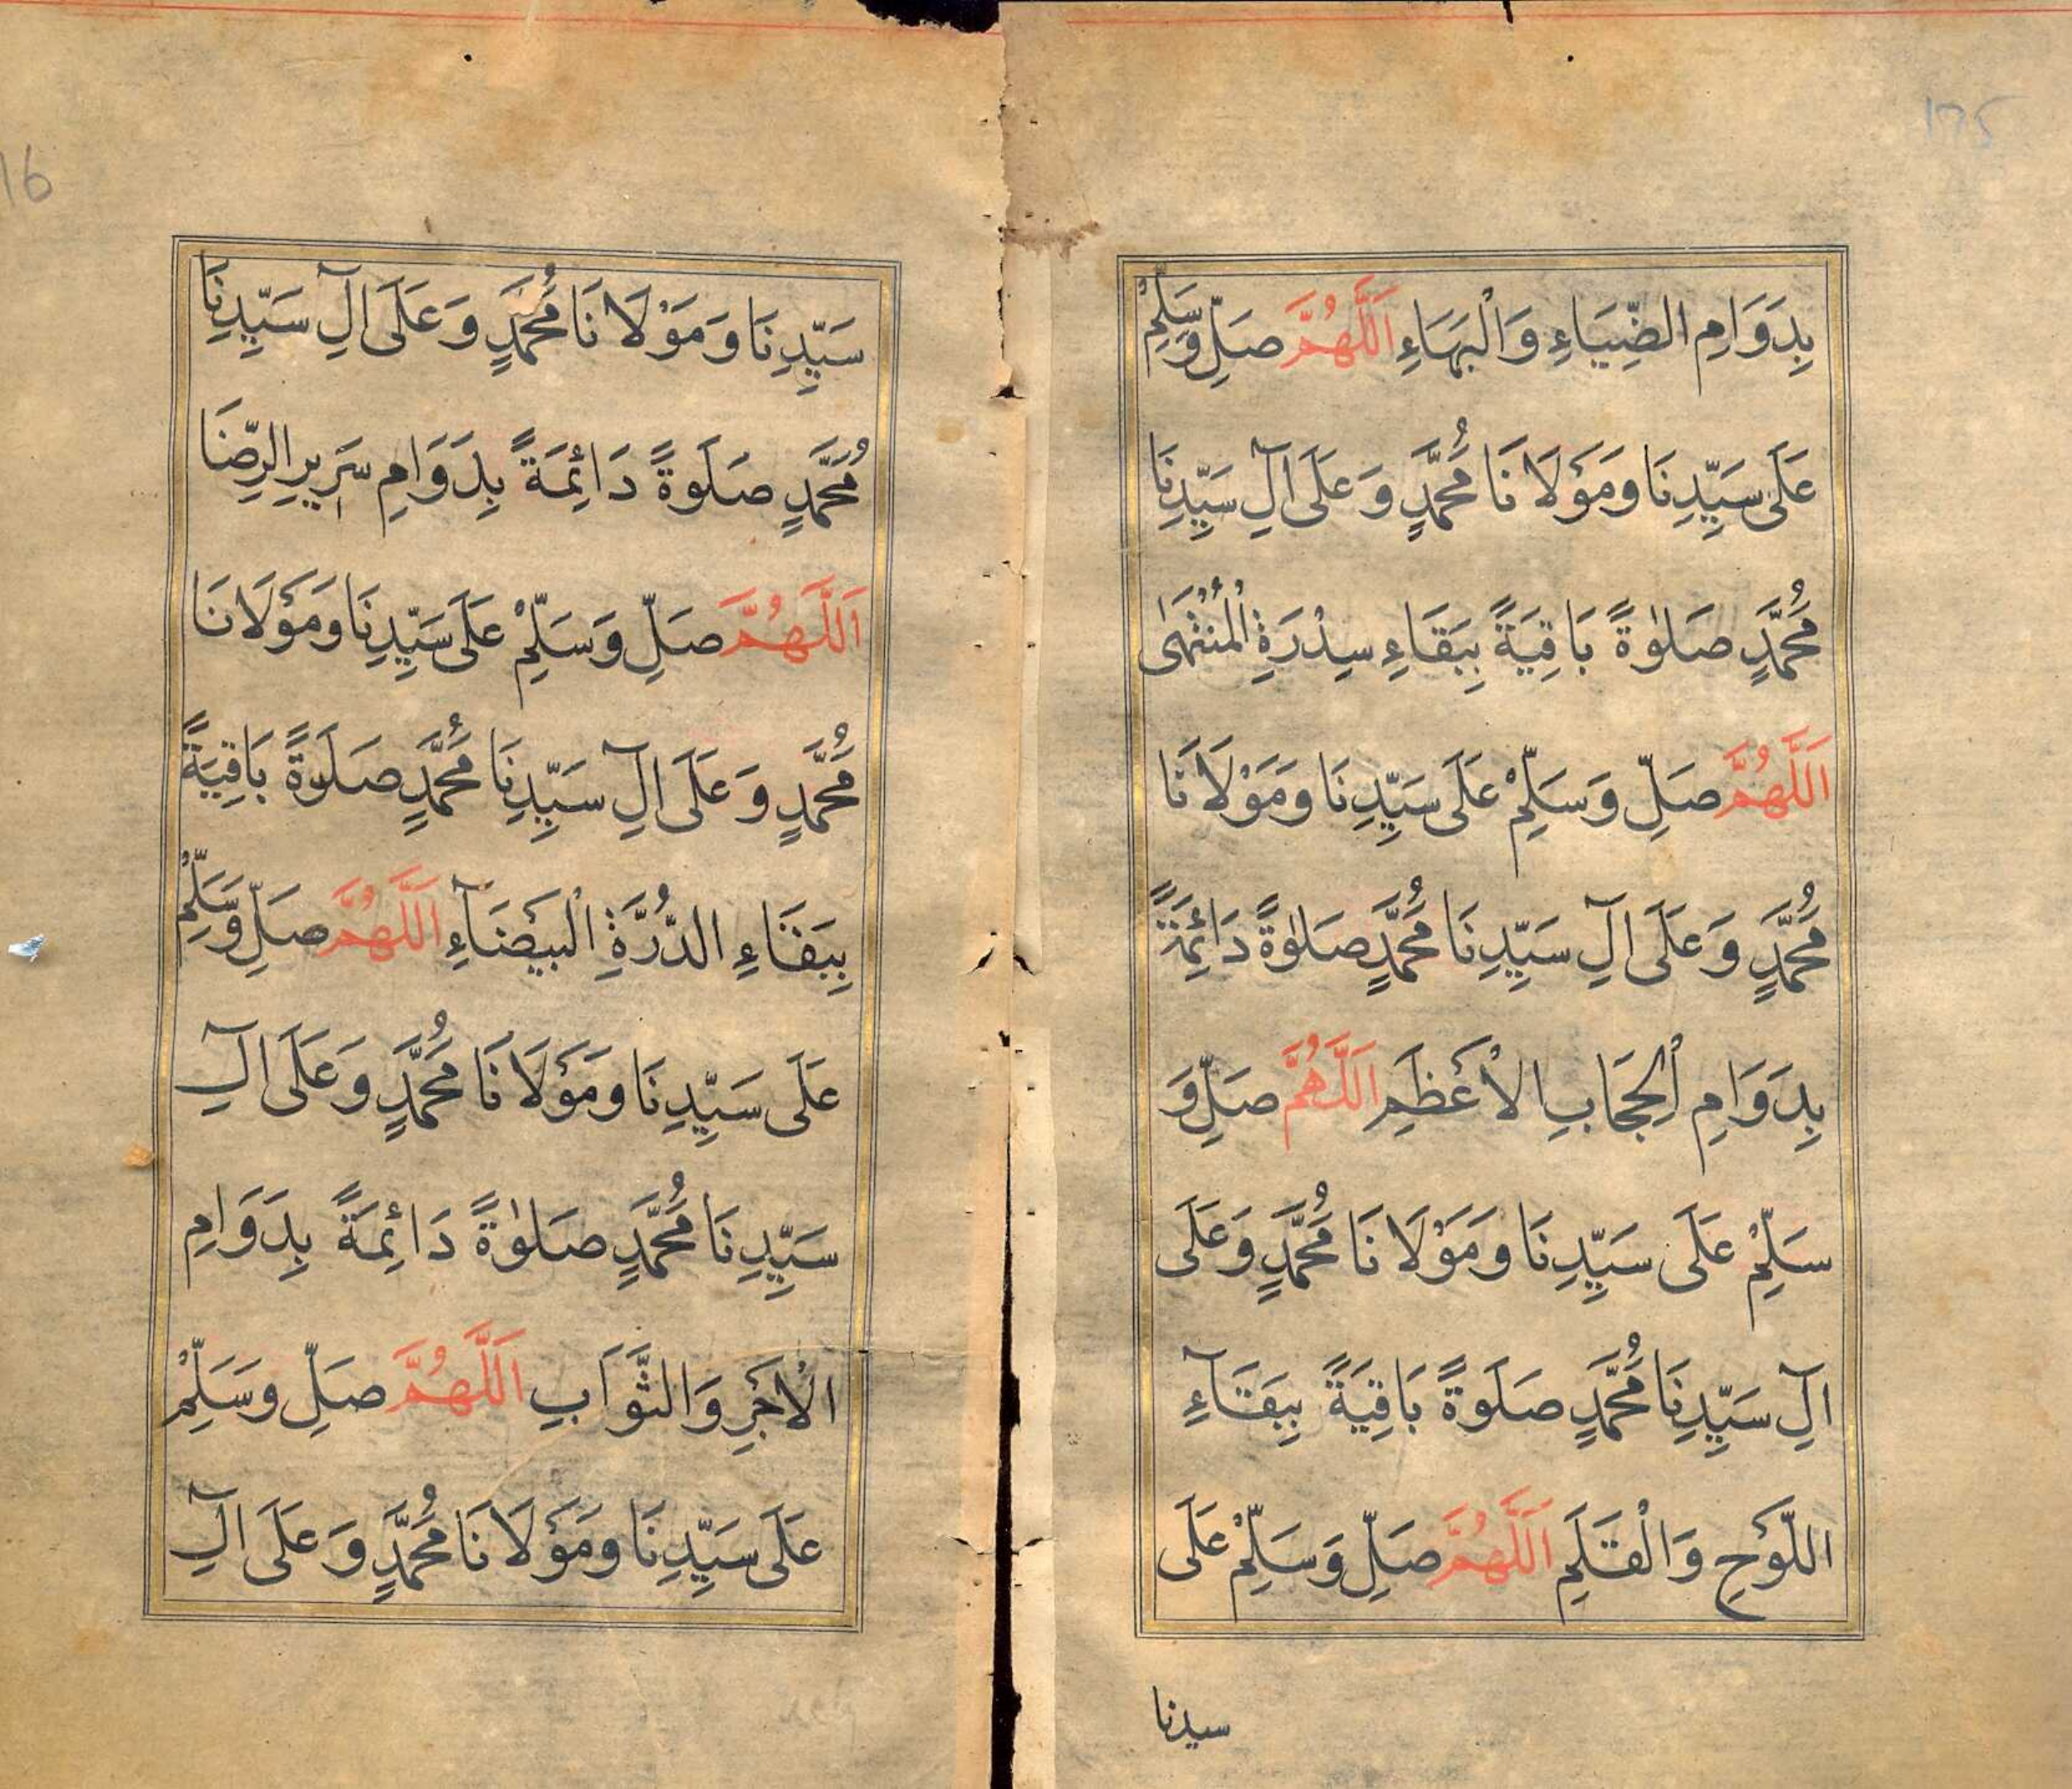 بِدَوَامِ الضِّيَاءِ وَالْبَهَاءِ اَللَّهُمَّ صَلِّ وَسَلِّمْ
عَلَى سَيِّدِنَا وَمَوْلَانَا مُحَمَّدٍ وَعَلَى اٰلِ سَيِّدِنَا
مُحَمَّدٍ صَلٰوةً بَاقِيَةً بِبَقَاءِ سِدْرَةِ الْمُنْتَهٰى
اَللَّهُمَّ صَلِّ وَسَلِّمْ عَلَى سَيِّدِنَا وَمَوْلَانَا
مُحَمَّدٍ وَعَلَى اٰلِ سَيِّدِنَا مُحَمَّدٍ صَلٰوةً دَائِمَةً
بِدَوَامِ الْحِجَابِ الْاَعْظَمِ اَللَّهُمَّ صَلِّ وَ
سَلِّمْ عَلَى سَيِّدِنَا وَمَوْلَانَا مُحَمَّدٍ وَعَلَى
اٰلِ سَيِّدِنَا مُحَمَّدٍ صَلَوةً بَاقِيَةً بِبَقَآءِ
اللَّوْحِ وَالْقَلَمِ اَللَّهُمَّ صَلِّ وَسَلِّمْ عَلَى
سيدنا
سَيِّدِنَا وَمَوْلَانَا مُحَمَّدٍ وَعَلَى اٰلِ سَيِّدِنَا
مُحَمَّدٍ صَلَوةً دَائِمَةً بِدَوَامِ سَرِيرِ الرِّضَا
اَللَّهُمَّ صَلِّ وَسَلِّمْ عَلَى سَيِّدِنَا وَمَوْلَانَا
مُحَمَّدٍ وَعَلَى اٰلِ سَيِّدِنَا مُحَمَّدٍ صَلَوةً بَاقِيَةً
بِبَقَاءِ الدُّرَّةِ الْبَيْضَآءِ اَللَّهُمَّ صَلِّ وَسَلِّمْ
عَلَى سَيِّدِنَا وَمَوْلَانَا مُحَمَّدٍ وَعَلَى اٰلِ
سَيِّدِنَا مُحَمَّدٍ صَلٰوةً دَائِمَةً بِدَوَامِ
الْاَجْرِ وَالثَّوَابِ اَللَّهُمَّ صَلِّ وَسَلِّمْ
عَلَى سَيِّدِنَا وَمَوْلَانَا مُحَمَّدٍ وَعَلَى اٰلِ
16